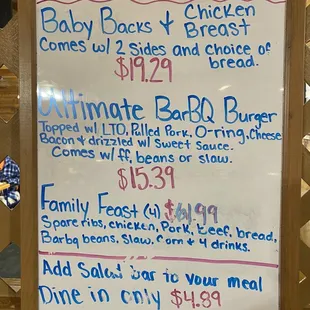 Baby Backs & Chicken Breast
Comes w/ 2 Sides and choice of bread.
$19.29
Ultimate BarBQ Burger
Topped w/ LTO, Pulled Pork, O-ring, Cheese
Bacon & drizzled w/ Sweet Sauce.
Comes w/ ff, beans or slaw.
$15.39
Family Feast (4) $61.99
Spareribs, chicken, Pork, beef, bread,
Barbq beans, slaw, corn & 4 drinks.
Add Salad bar to your meal
Dine in only $4.89